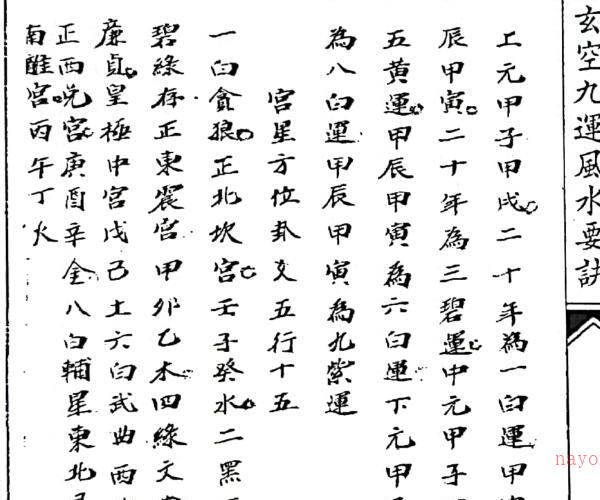 玄空九運風水要訣
上元甲子甲戌二十年為一白運甲
辰甲寅二十年為三碧運中元甲子
五黄運甲辰甲寅為六白運下元甲
為八白運甲辰甲寅為九紫運
宮星方位卦爻五行十五
一白貪狼正北坎宮壬子癸水二黑
碧緑存正東震宮甲卯乙木四綠文
廉貞皇極中宮戊己土六白武曲西
正西兌宮庚酉辛金八白輔星東北
南離宮丙午丁火
nayo